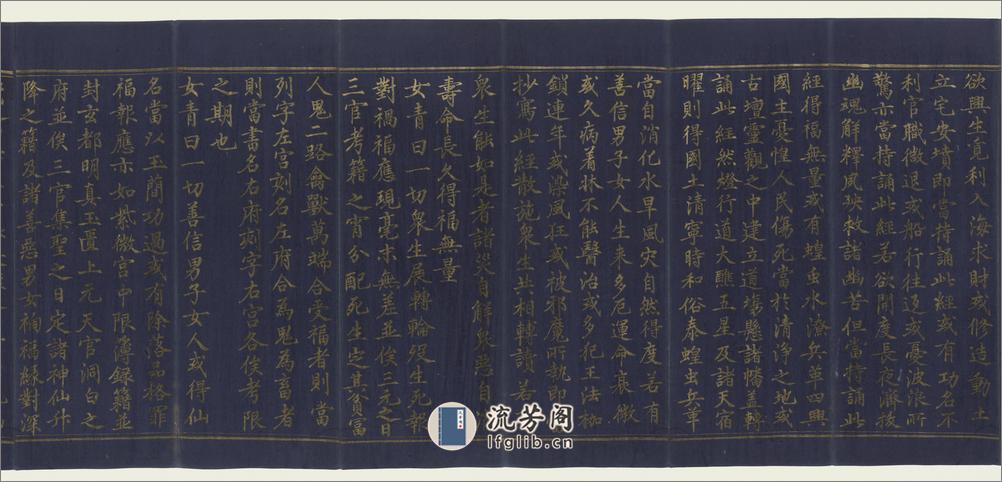 欲興生覓利入海求財或修造動土
立宅安墳即當持誦此經或有功名不
利官職微退或船行往返或憂波浪所
驚亦當持誦此經若欲開度長夜濟拔
幽魂解釋風殃救諸幽苦但當持誦此
經得福無量或有蝗虫水潦兵革四興
國主憂惶人民傷死當於清淨之地或
古壇靈觀之中建立道場懸諸幡蓋轉
誦此經然燈行道大醮五星及諸天宿
曜則得國土清寧時和俗泰蝗虫兵革
當自消化水旱風灾自然得度若有
善信男子女人生來多厄運命衰微
或久病著牀不能醫治或多犯王法枷
鎖連年或染風狂或被邪魔所執取
抄寫此經散施衆生共相轉讀若
衆生能如是者諸災自解衆惡自
壽命長久得福無量
女青曰一切衆生展轉輪歿生死報
對禍福應現毫末無差並俟三元之日
三官考籍之宵分配死生定其貧富
人鬼二路禽獸萬端合受福者則當
列字左宫刻名左府合為鬼為畜者
則當書名右府刻字右宫各俟考限
之期也
女青曰一切善信男子女人或得仙
名當以玉簡功過或有除落品格罪
福報應亦如紫微宫中限簿録籍並
封玄都明真玉匱上元天官洞白之
府並俟三官集聖之日定諸神仙升
降之籍及諸善惡男女禍福緣對深
流芳阁
lfglib.cn